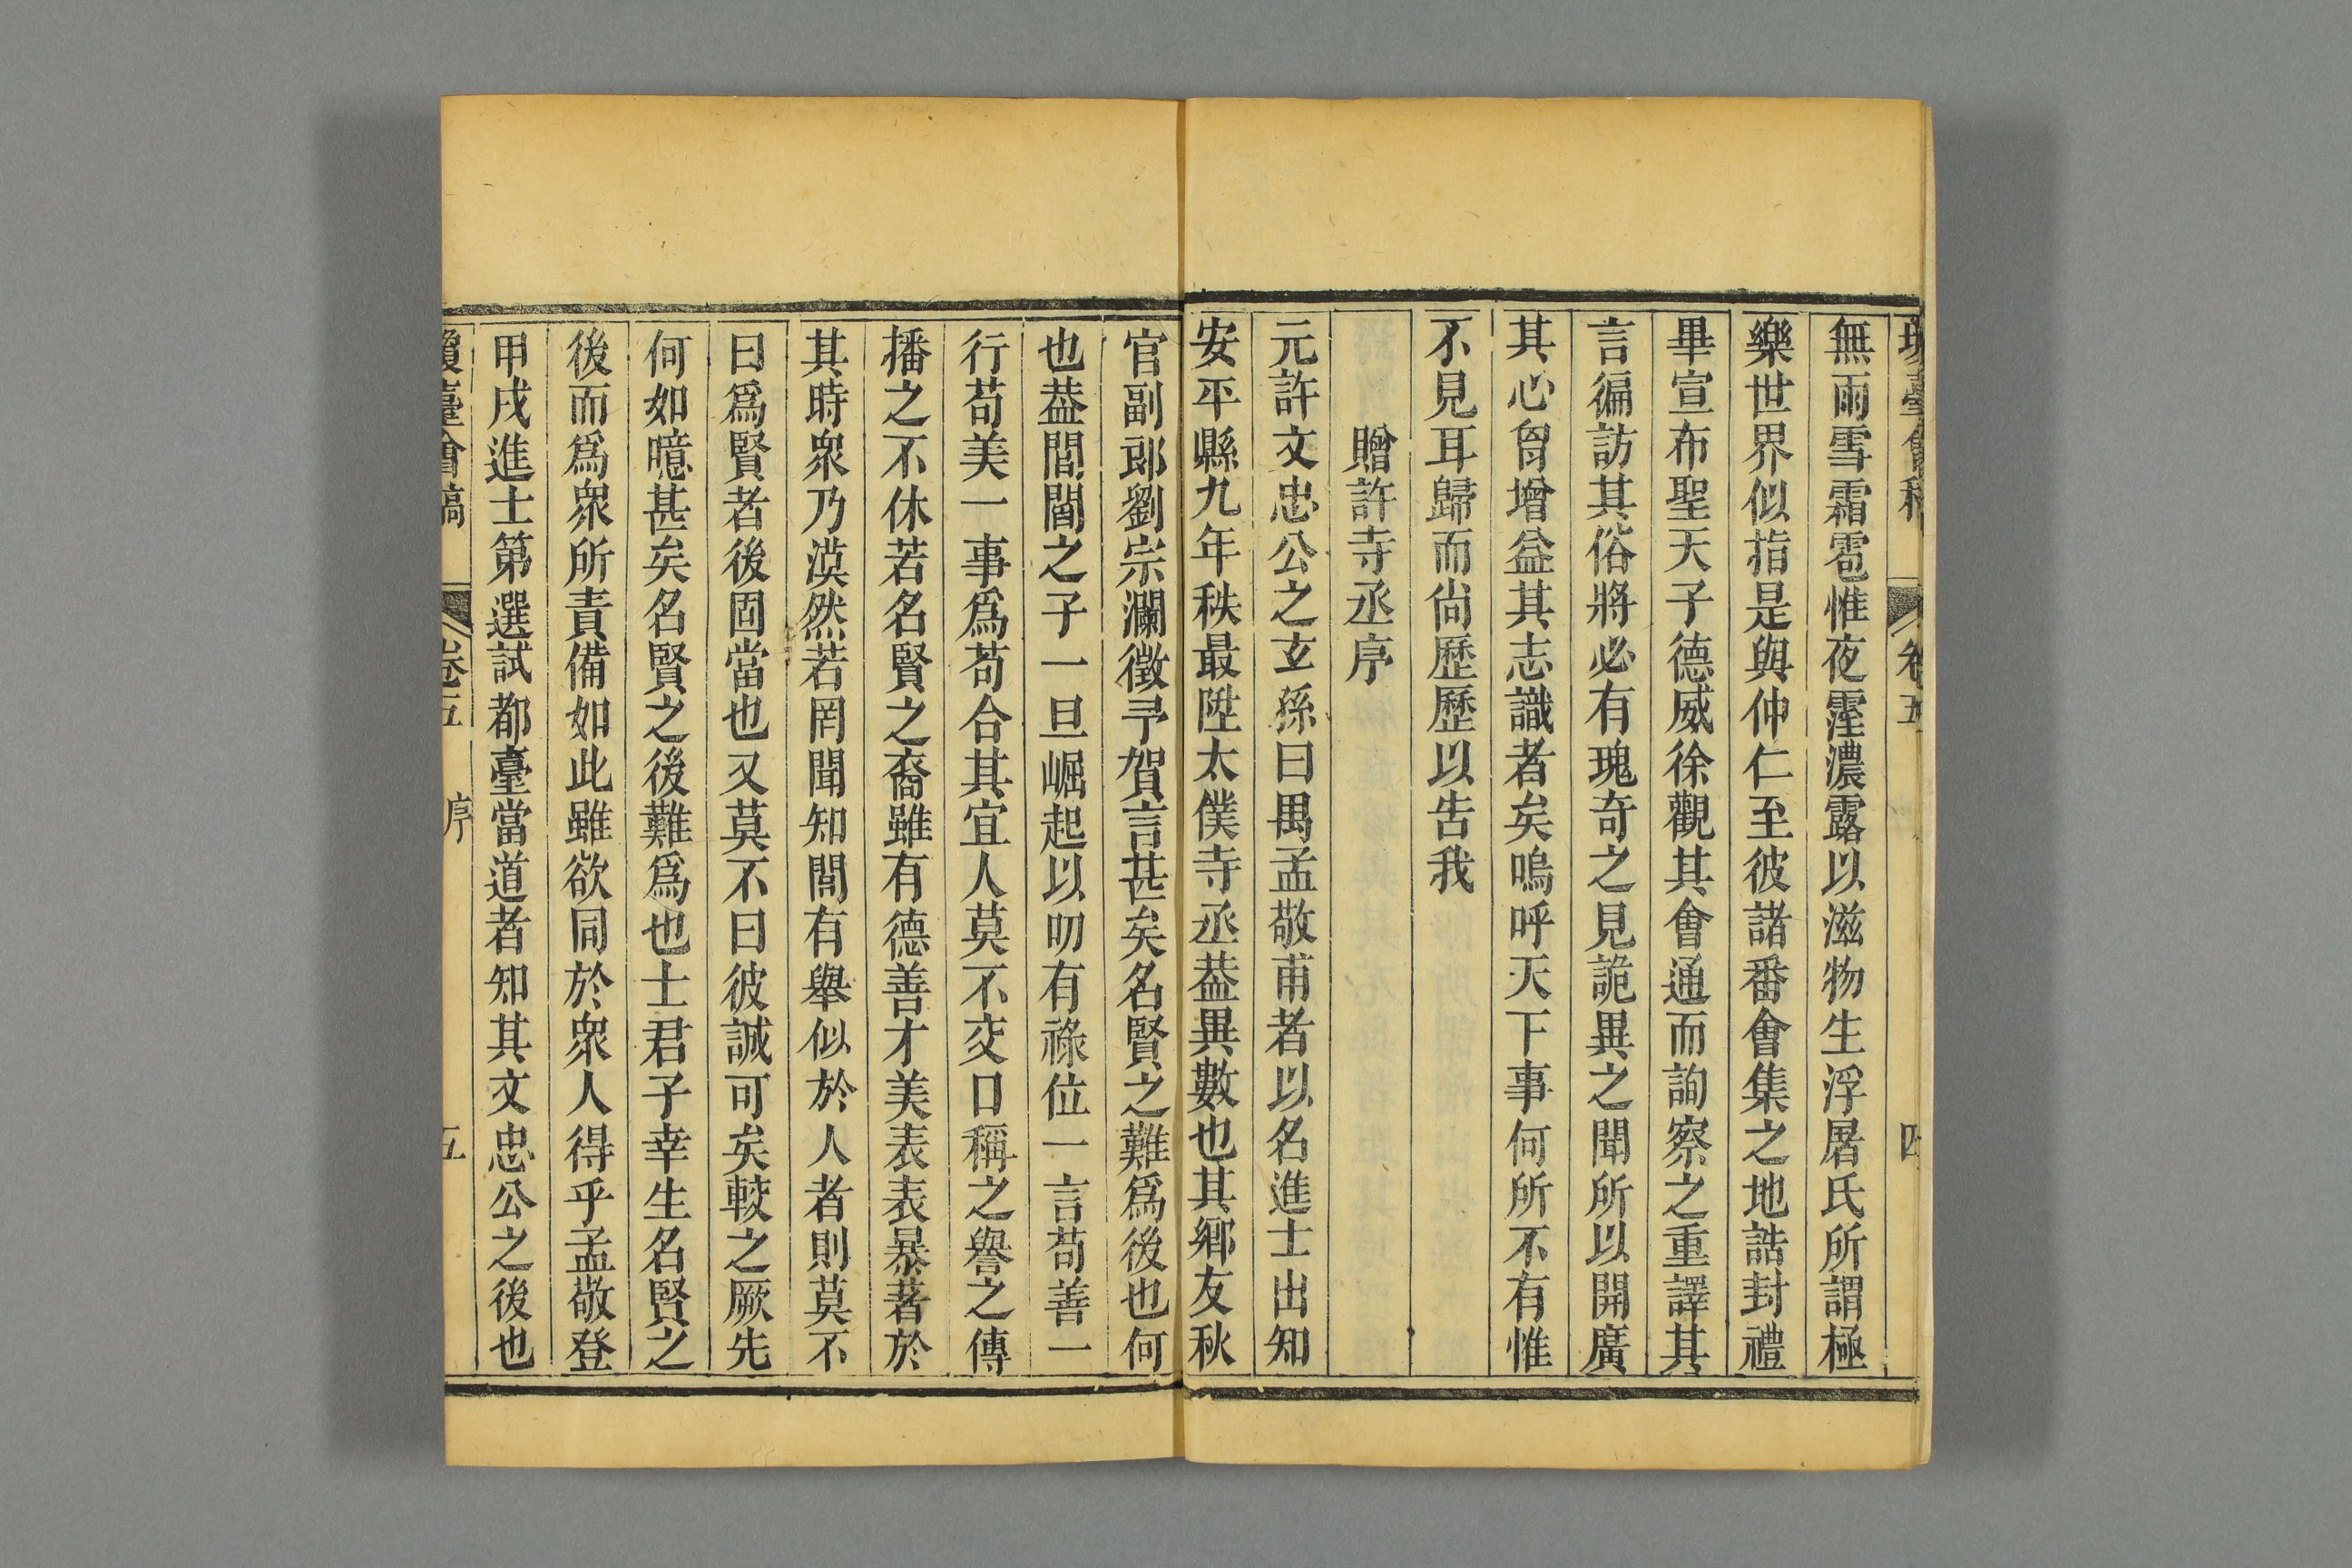 瓊臺會稿 卷五 四
無雨雪霜雹惟夜霪濃露以滋物生浮屠氏所謂極
樂世界似指是與仲仁至彼諸番會集之地誥封禮
畢宣布聖天子德威徐觀其會通而詢察之重譯其
言徧訪其俗將必有瑰奇之見詭異之聞所以開廣
其心胷增益其志識者矣嗚呼天下事何所不有惟
不見耳歸而尙歷歷以告我
贈許寺丞序
元許文忠公之玄孫曰禺孟敬甫者以名進士出知
安平縣九年秩最陞太僕寺丞葢異數也其鄉友秋
官副郎劉宗瀾徵予賀言甚矣名賢之難爲後也何
也葢閭閻之子一旦崛起以叨有祿位一言茍善一
行茍美一事爲茍合其宜人莫不交口稱之譽之傳
播之不休若名賢之裔雖有德善才美表表暴著於
其時衆乃漠然若罔聞知間有舉似於人者則莫不
曰爲賢者後固當也又莫不曰彼誠可矣較之厥先
何如噫甚矣名賢之後難爲也士君子幸生名賢之
後而爲衆所責備如此雖欲同於衆人得乎孟敬登
甲戌進士第選試都臺當道者知其文忠公之後也
瓊臺會稿 卷五 序 五